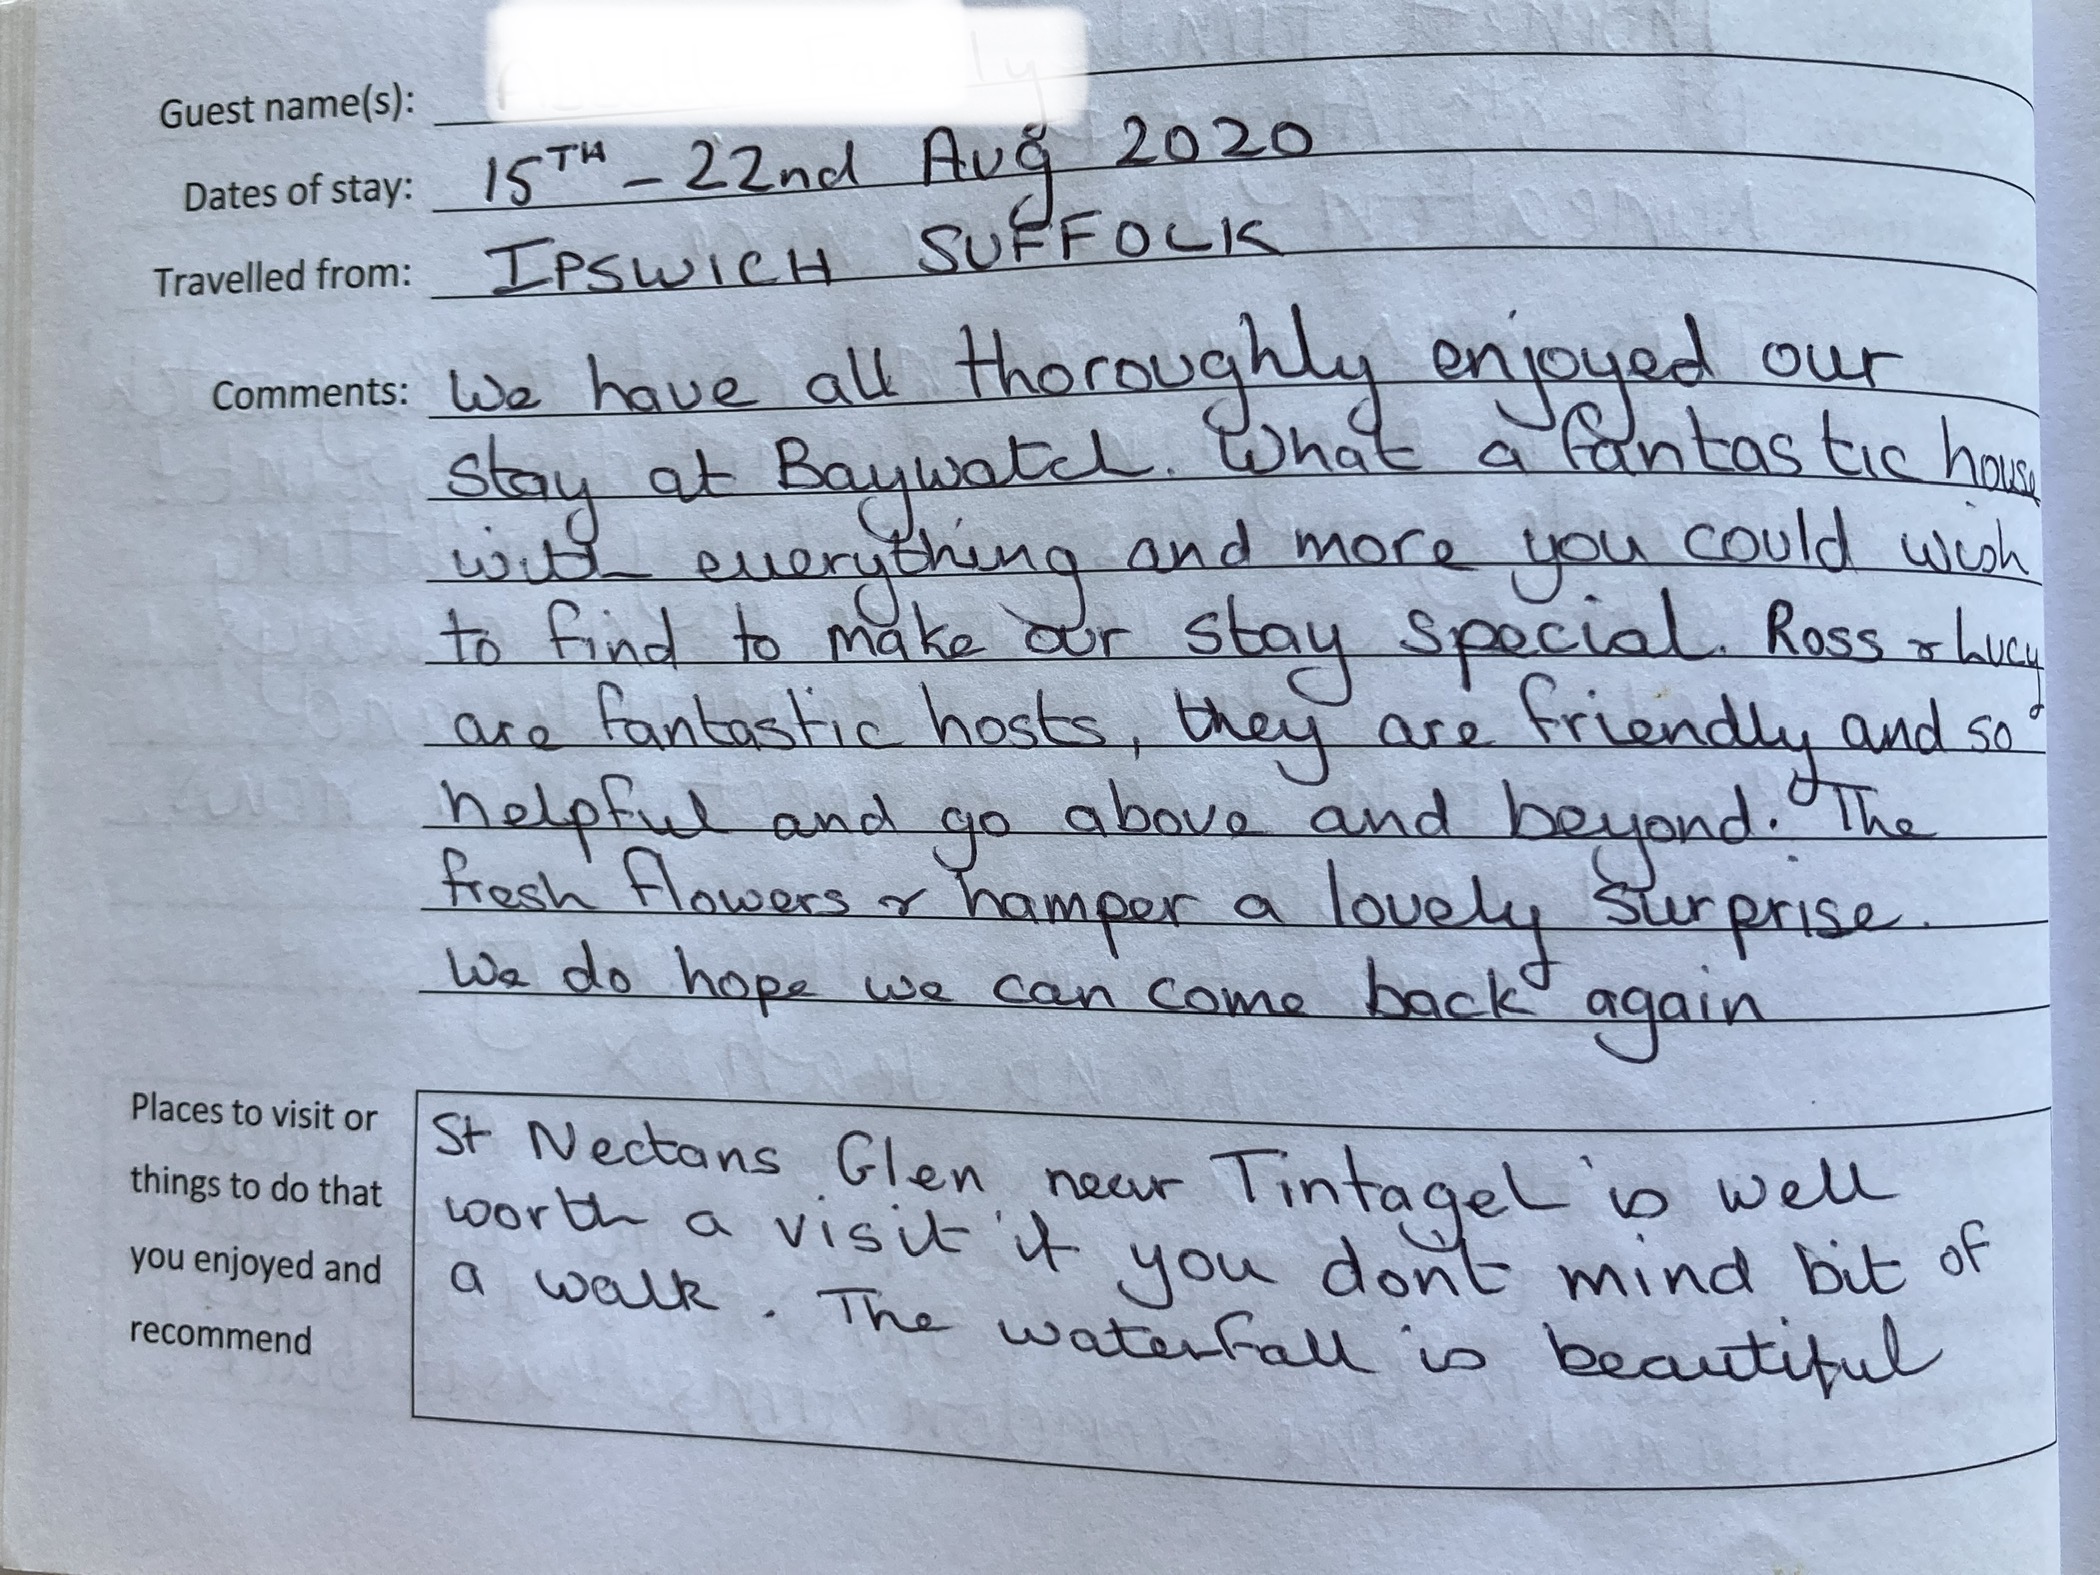 Guest name(s):
Dates of stay: 15TH - 22nd Aug 2020
Travelled from: IPSWICH SUFFOLK
Comments: We have all thoroughly enjoyed our
stay at Baywatch. What a fantastic house
with everything and more you could wish
to find to make our stay special. Ross & Lucy
are fantastic hosts, they are friendly and so
helpful and go above and beyond. The
fresh flowers & hamper a lovely surprise.
We do hope we can come back again
Places to visit or
things to do that
you enjoyed and
recommend
St Nectans Glen near Tintagel is well
worth a visit if you dont mind bit of
a walk. The waterfall is beautiful